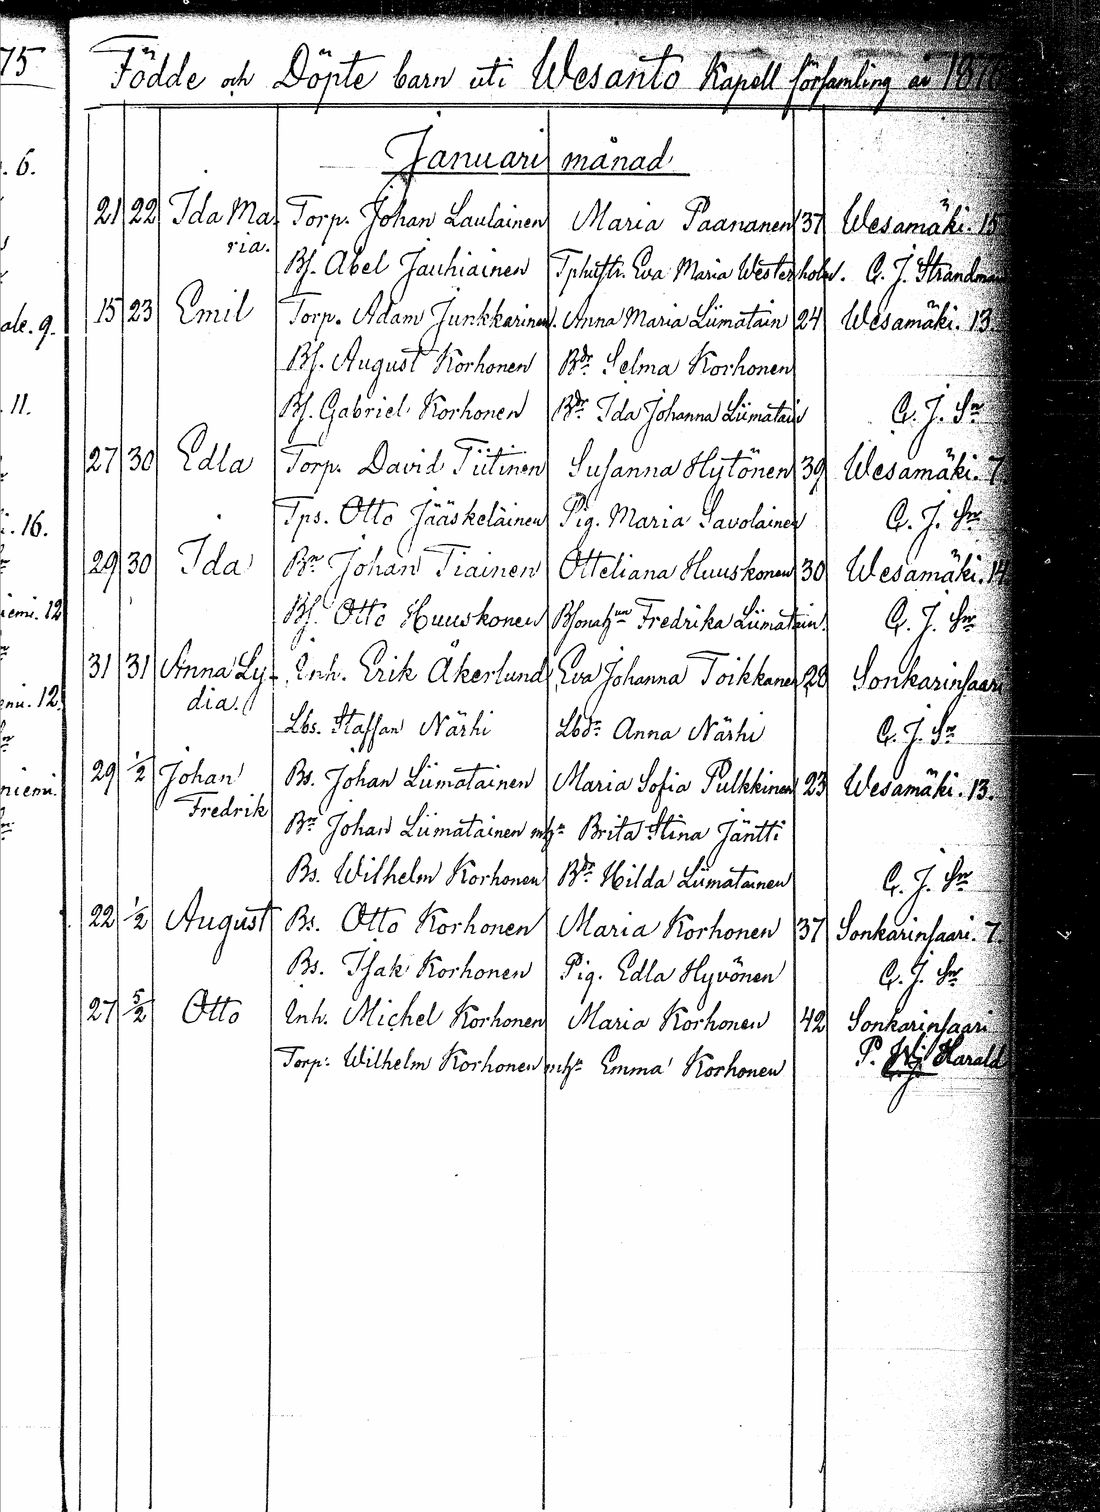 75
Födde och Döpte barn uti Wesanto Kapell församling år 187
Januari månad
6.
21 22 Ida Ma- Torp. Johan Laulainen Maria Paananen 37 Wesamäki. 15
ria.
Bs. Abel Jauhiainen Eva Maria Westerholm. C. J. Strandman
ale. 9. 15 23 Emil Torp. Adam Junkkarinen. Anna Maria Liimatain 24 Wesamäki. 13.
Bs. August Korhonen Bdr Selma Korhonen
11. Bs. Gabriel Korhonen Bdr Ida Johanna Liimatain C. J. Sn
27 30 Edla Torp. David Tiitinen Susanna Hytönen 39 Wesamäki. 7
i. 16. Tps. Otto Jääskeläinen Pig. Maria Savolainen C. J. Sn
29 30 Ida Bn Johan Tiainen Otteliana Huuskonen 30 Wesamäki. 14
iemi. 12 Bs. Otto Huuskonen Fredrika Liimatain. C. J. Sn
31 31 Anna Ly- Inh. Erik Åkerlund Eva Johanna Toikkanen 28 Sonkarinsaari
emi. 12. dia.
Lbs. Staffan Närhi Lbdr Anna Närhi C. J. Sn
niemi. 29 1/2 Johan Bs. Johan Liimatainen Maria Sofia Pulkkinen 23 Wesamäki. 13.
Fredrik
Bn Johan Liimatainen mhu Brita Stina Jäntti
Bs. Wilhelm Korhonen Bdr Hilda Liimatainen C. J. Sn
22 1/2 August Bs. Otto Korhonen Maria Korhonen 37 Sonkarinsaari. 7.
Bs. Isak Korhonen Pig. Edla Hyvönen C. J. Sn
27 5/2 Otto Inh. Michel Korhonen Maria Korhonen 42 Sonkarinsaari
Torp. Wilhelm Korhonen mhu Emma Korhonen P. W. Harald